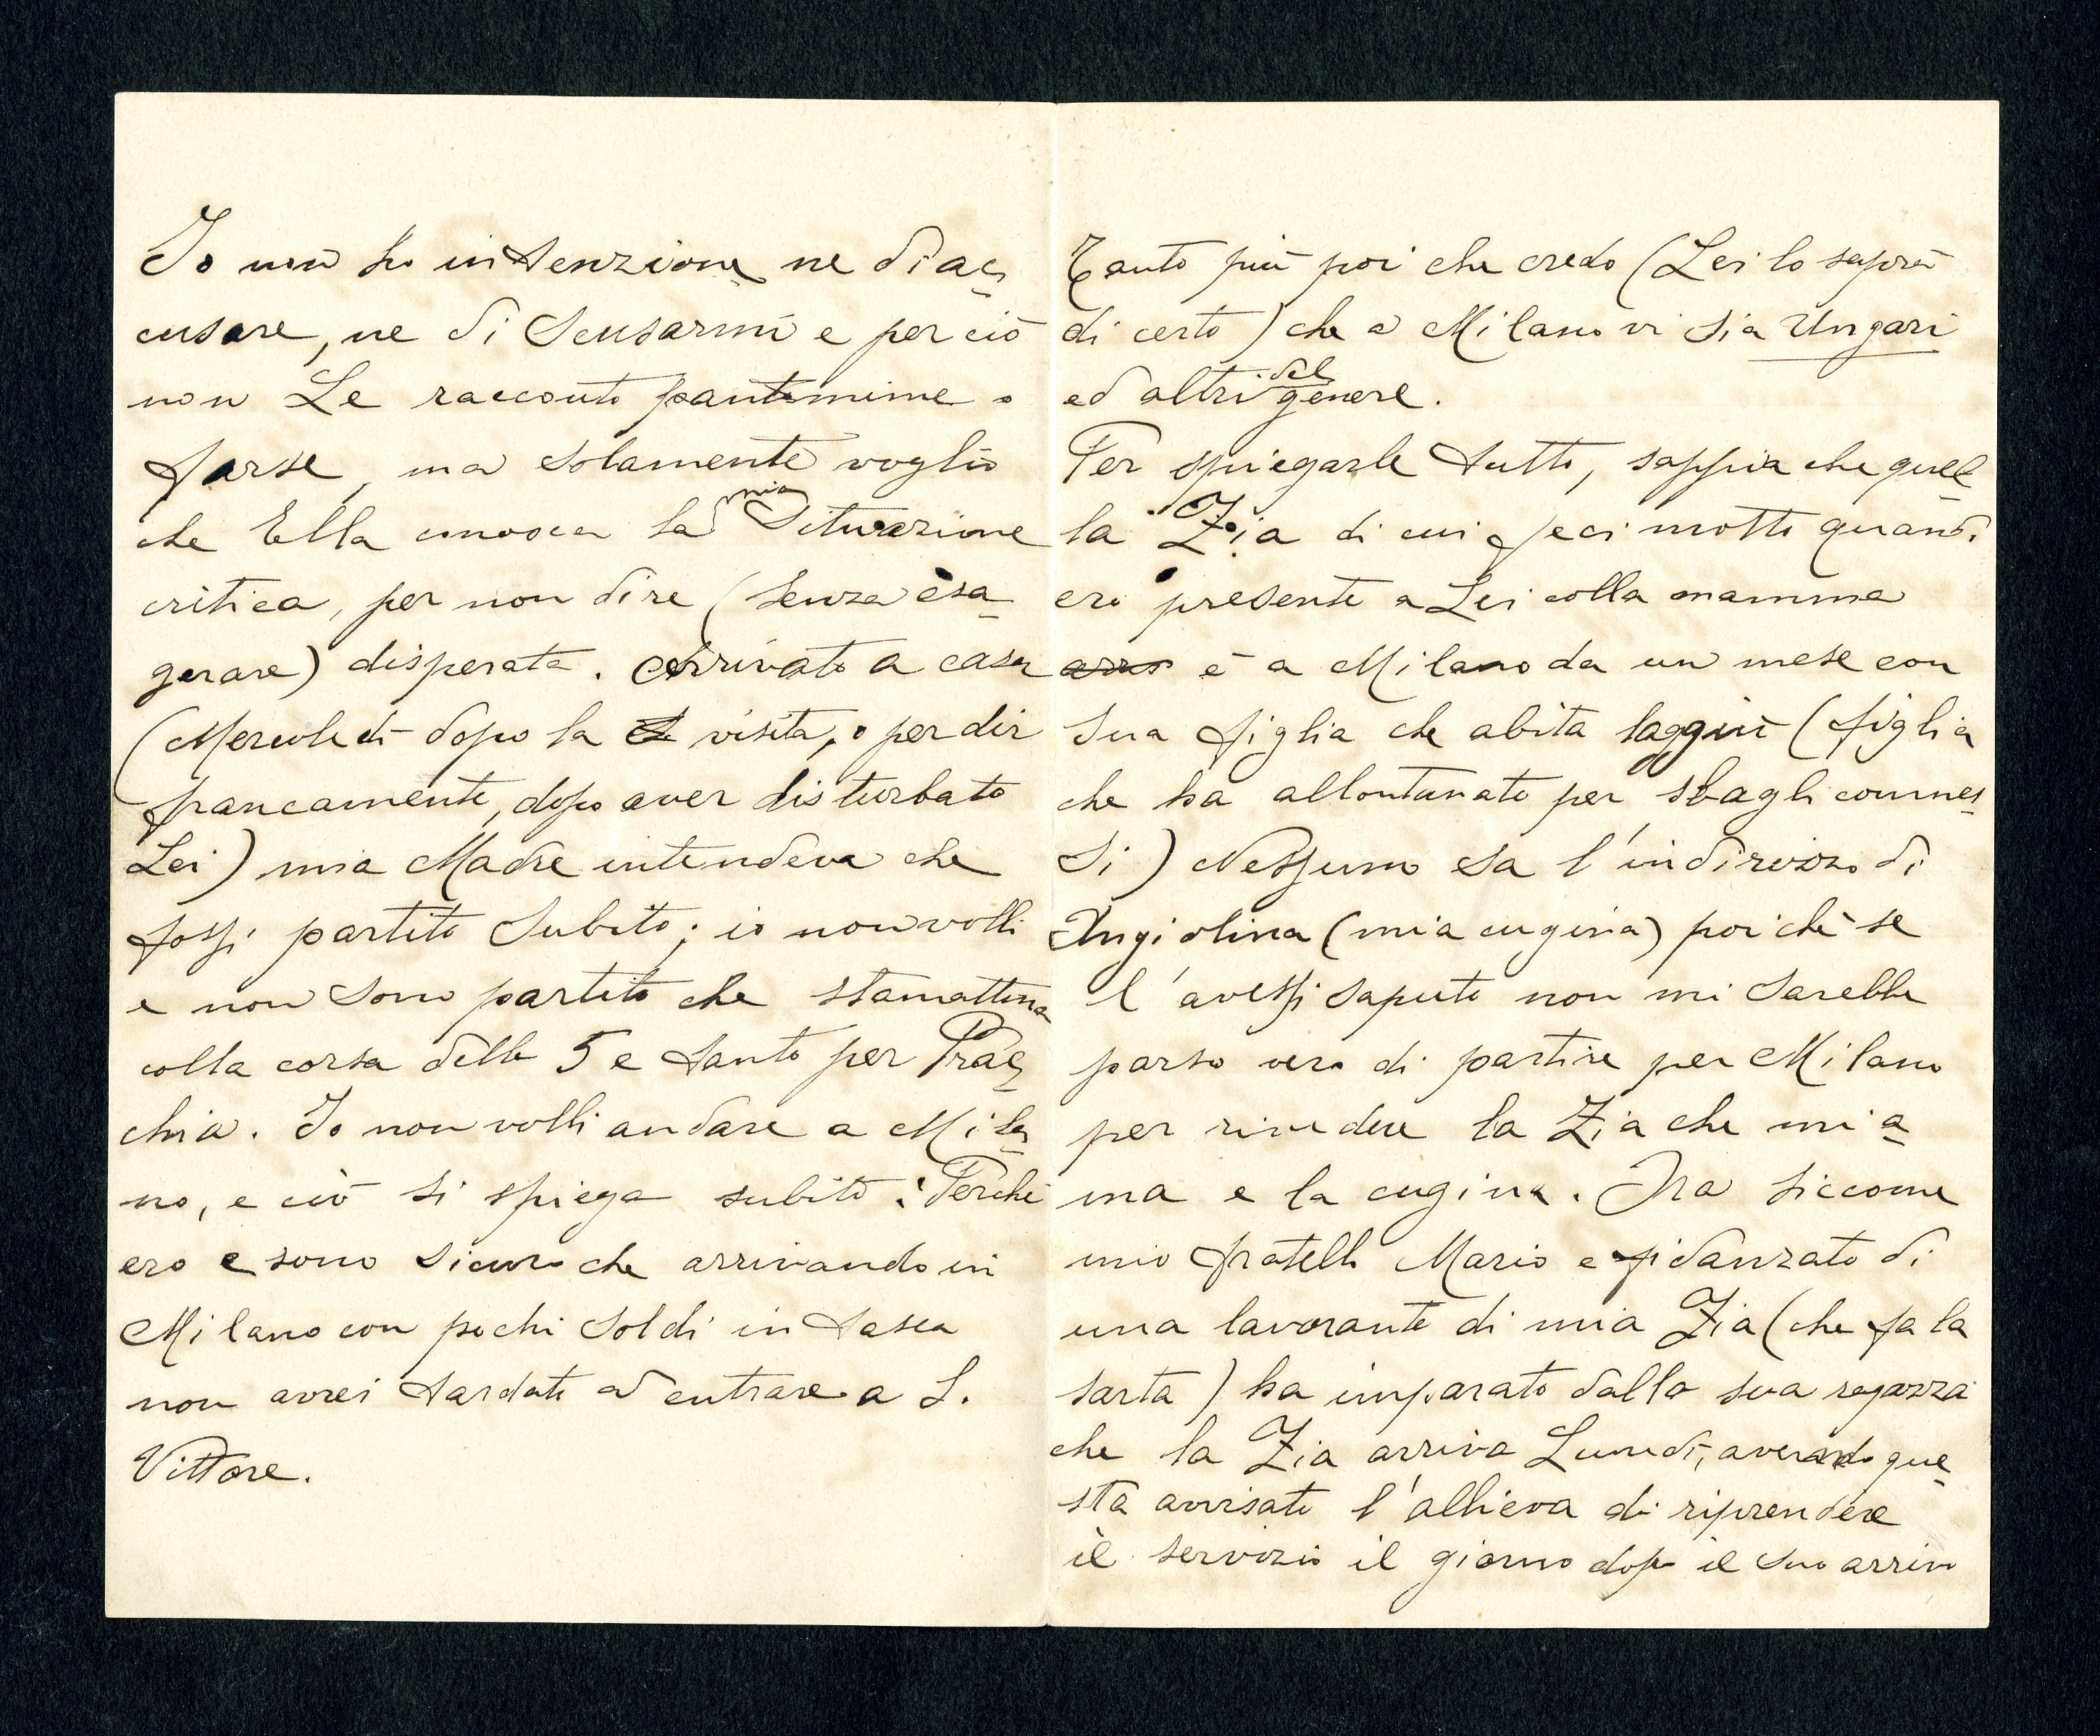 Io non ho intenzione ne di ac-
cusare, ne di scusarmi e per ciò
non Le racconto pantomime o
farse, ma solamente voglio
che Ella conosca la mia situazione
critica, per non dire (senza esa-
gerare) disperata. Arrivato a casa
(Mercoledì dopo la visita, o per dir
francamente, dopo aver disturbato
Lei) mia Madre intendeva che
fossi partito subito; io non volli
e non sono partito che stamattina
colla corsa delle 5 e tanto per Prac-
chia. Io non volli andare a Mila-
no, e ciò si spiega subito: Perchè
ero e sono sicuro che arrivando in
Milano con pochi soldi in tasca
non avrei tardato ad entrare a S.
Vittore.
Tanto più poi che credo (Lei lo saprà
di certo) che a Milano vi sia Ungari
ed altri del genere.
Per spiegarle tutto, sappia che quel-
la Zia di cui feci motto quand'
ero presente a Lei colla mamma
è a Milano da un mese con
sua figlia che abita laggiù (figlia
che ha allontanato per sbagli commes-
si) Nessuno sa l'indirizzo di
Angiolina (mia cugina) poichè se
l'avessi saputo non mi sarebbe
parso vero di partire per Milano
per rivedere la Zia che mi a-
ma e la cugina. Ora siccome
mio fratello Mario e fidanzato di
una lavorante di mia Zia (che fa la
sarta) ha imparato dalla sua ragazza
che la Zia arriva Lunedì, avendo que-
sta avvisato l'allieva di riprendere
il servizio il giorno dopo il suo arrivo